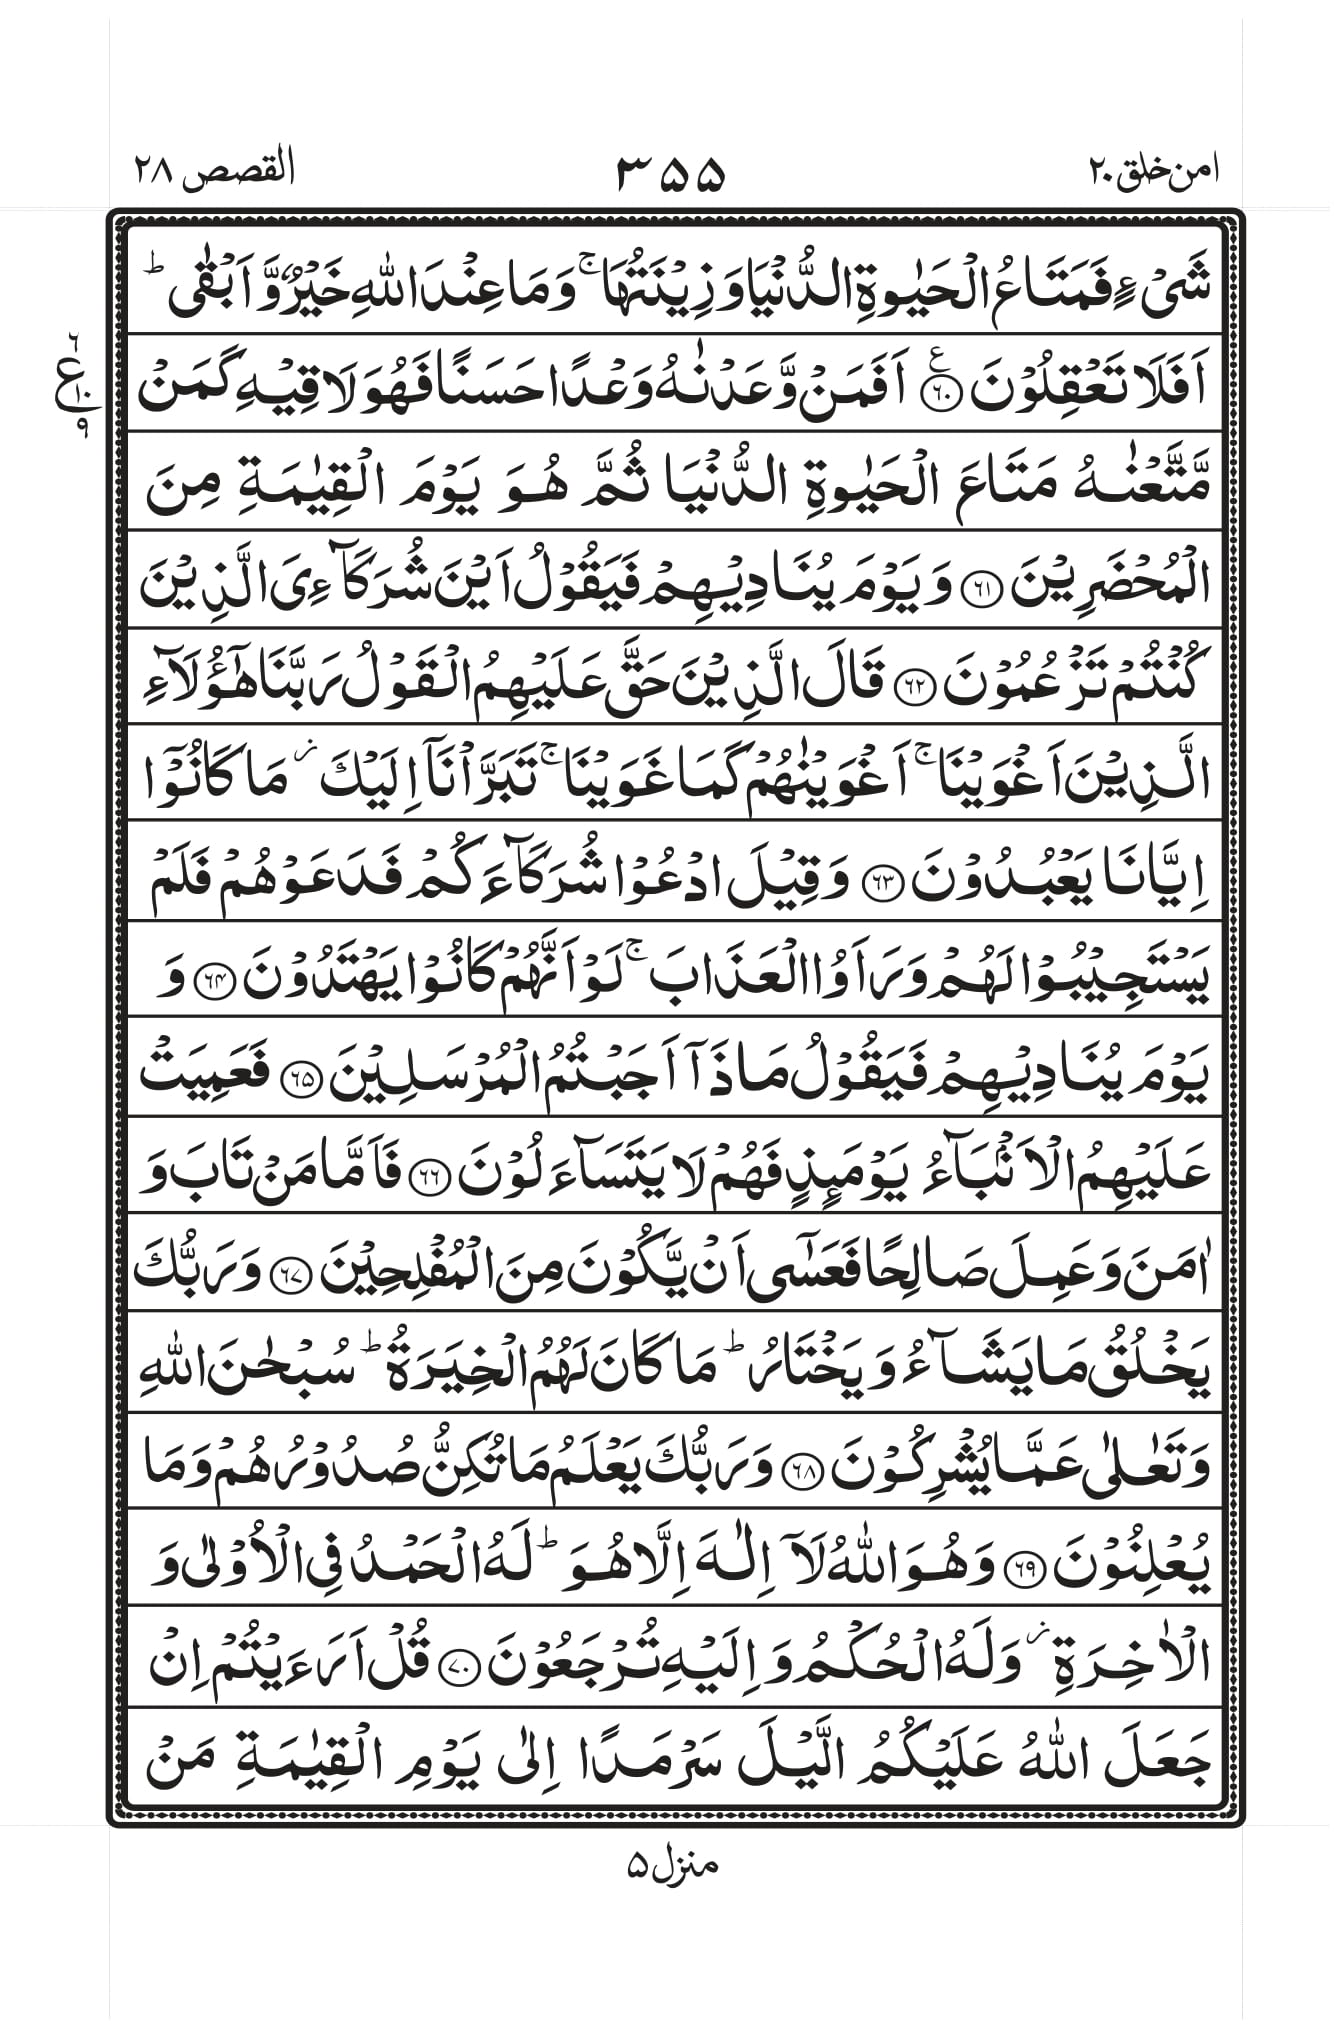 امن خلق ۲۰
۳۵۵
القصص ۲۸
شَىْءٍ فَمَتَاعُ الْحَيٰوةِ الدُّنْيَا وَزِيْنَتُهَا ۚ وَمَا عِنْدَ اللّٰهِ خَيْرٌ وَّ اَبْقٰى ؕ
اَفَلَا تَعْقِلُوْنَ ﴿۶۰﴾ ع اَفَمَنْ وَّعَدْنٰهُ وَعْدًا حَسَنًا فَهُوَ لَاقِيْهِ كَمَنْ
ع ۶ ۱۰ ۹
مَّتَّعْنٰهُ مَتَاعَ الْحَيٰوةِ الدُّنْيَا ثُمَّ هُوَ يَوْمَ الْقِيٰمَةِ مِنَ
الْمُحْضَرِيْنَ ﴿۶۱﴾ وَيَوْمَ يُنَادِيْهِمْ فَيَقُوْلُ اَيْنَ شُرَكَآءِىَ الَّذِيْنَ
كُنْتُمْ تَزْعُمُوْنَ ﴿۶۲﴾ قَالَ الَّذِيْنَ حَقَّ عَلَيْهِمُ الْقَوْلُ رَبَّنَا هٰٓؤُلَآءِ
الَّذِيْنَ اَغْوَيْنَا ۚ اَغْوَيْنٰهُمْ كَمَا غَوَيْنَا ۚ تَبَرَّاْنَاۤ اِلَيْكَ ۫ مَا كَانُوْۤا
اِيَّانَا يَعْبُدُوْنَ ﴿۶۳﴾ وَقِيْلَ ادْعُوْا شُرَكَآءَكُمْ فَدَعَوْهُمْ فَلَمْ
يَسْتَجِيْبُوْا لَهُمْ وَرَاَوُا الْعَذَابَ ۚ لَوْ اَنَّهُمْ كَانُوْا يَهْتَدُوْنَ ﴿۶۴﴾ وَ
يَوْمَ يُنَادِيْهِمْ فَيَقُوْلُ مَاذَاۤ اَجَبْتُمُ الْمُرْسَلِيْنَ ﴿۶۵﴾ فَعَمِيَتْ
عَلَيْهِمُ الْاَنْۢبَآءُ يَوْمَئِذٍ فَهُمْ لَا يَتَسَآءَلُوْنَ ﴿۶۶﴾ فَاَمَّا مَنْ تَابَ وَ
اٰمَنَ وَعَمِلَ صَالِحًا فَعَسٰۤى اَنْ يَّكُوْنَ مِنَ الْمُفْلِحِيْنَ ﴿۶۷﴾ وَرَبُّكَ
يَخْلُقُ مَا يَشَآءُ وَيَخْتَارُ ؕ مَا كَانَ لَهُمُ الْخِيَرَةُ ؕ سُبْحٰنَ اللّٰهِ
وَتَعٰلٰى عَمَّا يُشْرِكُوْنَ ﴿۶۸﴾ وَرَبُّكَ يَعْلَمُ مَا تُكِنُّ صُدُوْرُهُمْ وَمَا
يُعْلِنُوْنَ ﴿۶۹﴾ وَهُوَ اللّٰهُ لَاۤ اِلٰهَ اِلَّا هُوَ ؕ لَهُ الْحَمْدُ فِى الْاُوْلٰى وَ
الْاٰخِرَةِ ۫ وَلَهُ الْحُكْمُ وَاِلَيْهِ تُرْجَعُوْنَ ﴿۷۰﴾ قُلْ اَرَءَيْتُمْ اِنْ
جَعَلَ اللّٰهُ عَلَيْكُمُ الَّيْلَ سَرْمَدًا اِلٰى يَوْمِ الْقِيٰمَةِ مَنْ
منزل ۵